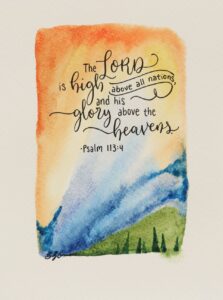 The LORD
is high above all nations,
and his
glory above the
heavens.
·Psalm 113:4